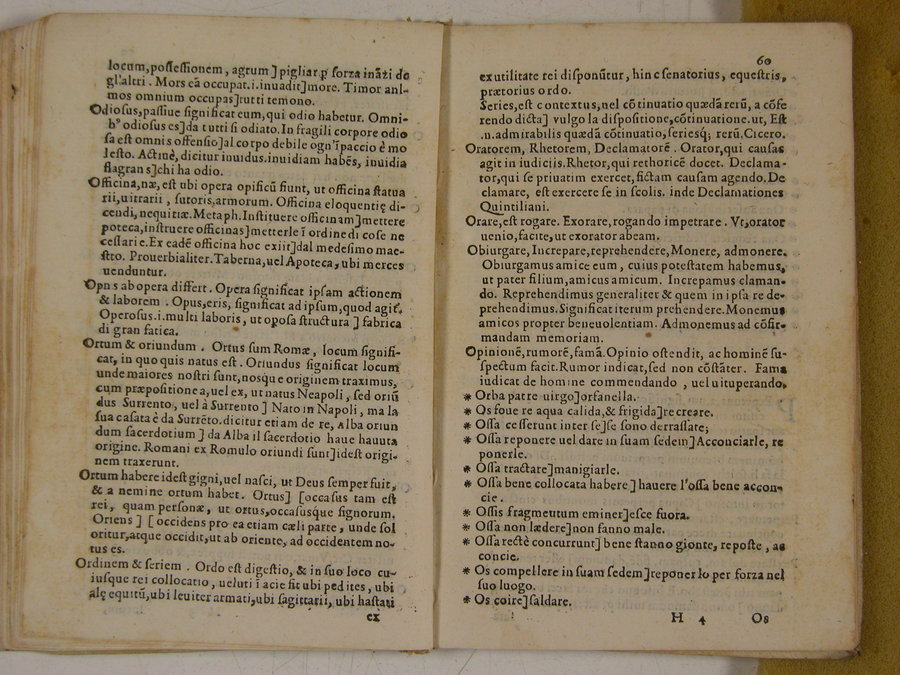 locum,possessionem, agrum ] pigliar ꝑ forza inãzi do
gl'altri . Mors ea occupat.i.inuadit]more. Timor ani-
mos omnium occupas]tutti temono.
Odiosus,passiue significat eum,qui odio habetur. Omni-
odiosus es]da tutti si odiato.In fragili corpore odio
sa est omnis offensio]al corpo debile ogn'ipaccio è mo
lesto. Actiuè, dicitur inuidus.inuidiam habẽs, inuidia
flagrans]chi ha odio.
Officina,næ, est ubi opera opificũ fiunt, ut officina statua
rii,uitrarii , sutoris,armorum. Officina eloquentię di-
cendi, nequitiæ. Metaph.Instituere officinam]mettere
poteca,instruere officinas]metterle ĩ ordine di cose ne
cessarie.Ex eadẽ officina hoc exiit]dal medesimo mae-
stro. Prouerbialiter.Taberna,uel Apoteca, ubi merces
uenduntur.
Opus ab opera differt . Opera significat ipsam actionem
& laborem . Opus,eris, significat ad ipsum,quod agit.
Operosus.i.multi laboris, ut oposa structura ] fabrica
di gran fatica.
Ortum & oriundum . Ortus sum Romæ , locum signifi-
cat, in quo quis natus est . Oriundus significat locum
unde maiores nostri sunt,nosque originem traximus,
cum præpositione a,uel ex, ut natus Neapoli , sed oriũ
dus Surrento, uel à Surrento ] Nato in Napoli , ma la
sua casata è da Surrẽto.dicitur etiam de re, Alba oriun
dum sacerdotium ] da Alba il sacerdotio haue hauuta
origine. Romani ex Romulo oriundi sunt]idest origi-
nem traxerunt.
Ortum habere idest gigni,uel nasci, ut Deus semper fuit,
& a nemine ortum habet. Ortus] [occasus tam est
rei , quam personæ, ut ortus,occasusque signorum.
Oriens ] [ occidens pro ea etiam cæli parte , unde sol
oritur,atque occidit,ut ab oriente, ad occidentem no-
tus es.
Ordinem & seriem . Ordo est digestio, & in suo loco cu-
iusque rei collocatio , ueluti ĩ acie sit ubi pedites , ubi
alę equitũ,ubi leuiter armati,ubi sagittarii, ubi hastati
ex
60
ex utilitate rei disponũtur , hinc senatorius, equestris,
prætorius ordo.
Series,est contextus,uel cõtinuatio quædã rerũ, a cõse
rendo dicta] vulgo la dispositione,cõtinuatione.ut, Est
.n.admirabilis quædã cõtinuatio,seriesq; rerũ.Cicero.
Oratorem, Rhetorem, Declamatorẽ . Orator,qui causas
agit in iudiciis.Rhetor,qui rethoricẽ docet. Declama-
tor,qui se priuatim exercet,fictam causam agendo.De
clamare, est exercere se in scolis. inde Declamationes
Quintiliani.
Orare,est rogare. Exorare,rogando impetrare . Vt,orator
uenio,facite,ut exorator abeam.
Obiurgare, Increpare, reprehendere,Monere, admonere.
Obiurgamus amice eum , cuius potestatem habemus,
ut pater filium,amicus amicum. Increpamus claman-
do. Reprehendimus generaliter & quem in ipsa re de-
prehendimus.Significat iterum prehendere.Monemus
amicos propter beneuolentiam. Admonemus ad cõfir-
mandam memoriam.
Opinionẽ,rumorẽ,famã.Opinio ostendit, ac hominẽ su-
spectum facit.Rumor indicat,sed non cõstãter. Fama
iudicat de homine commendando , uel uituperando.
* Orba patre uirgo]orfanella.
* Os fouere aqua calida,& frigida]recreare.
* Ossa cesserunt inter se]se sono derrassate;
* Ossa reponere uel dare in suam sedem]Acconciarle, re
ponerle.
* Ossa tractare]manigiarle.
* Ossa bene collocata habere ] hauere l'ossa bene accon-
cie .
* Ossis fragmentum eminet]esce fuora.
* Ossa non lædere]non fanno male.
* Ossa rectè concurrunt] bene stanno gionte, reposte , ac
concie.
* Os compellere in suam sedem]reponerlo per forza nel
suo luogo.
* Os coire]saldare.
H 4 Os